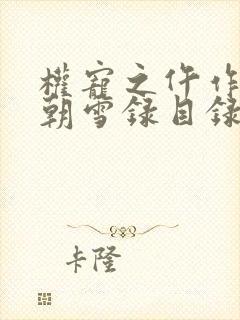 權寵之仵作
朝雪録目録
卡隆